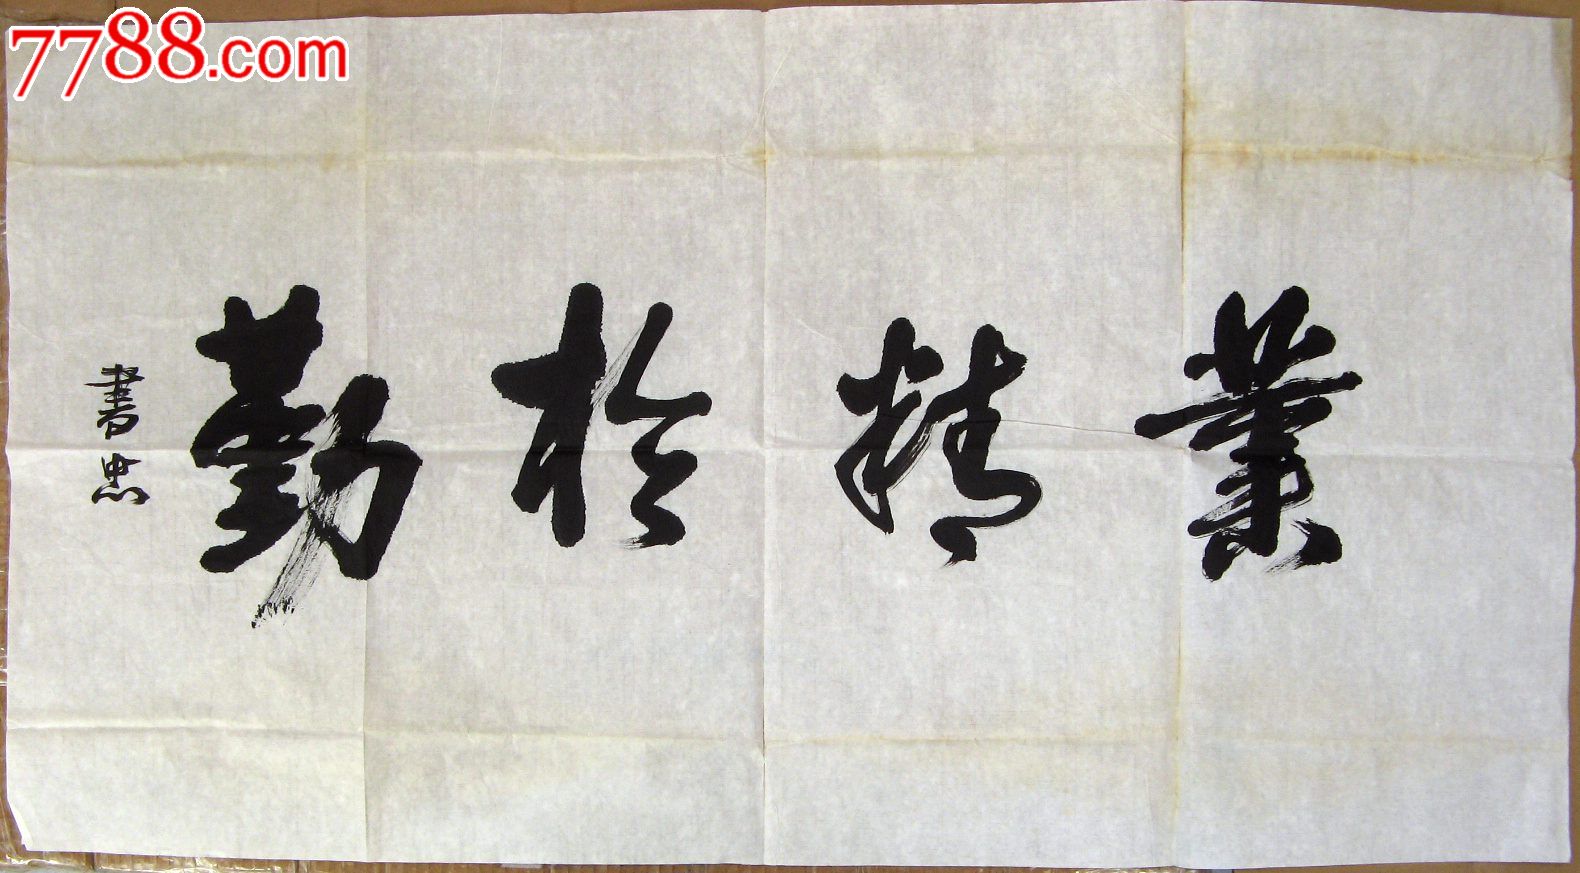 7788.com
業精於勤
書忠